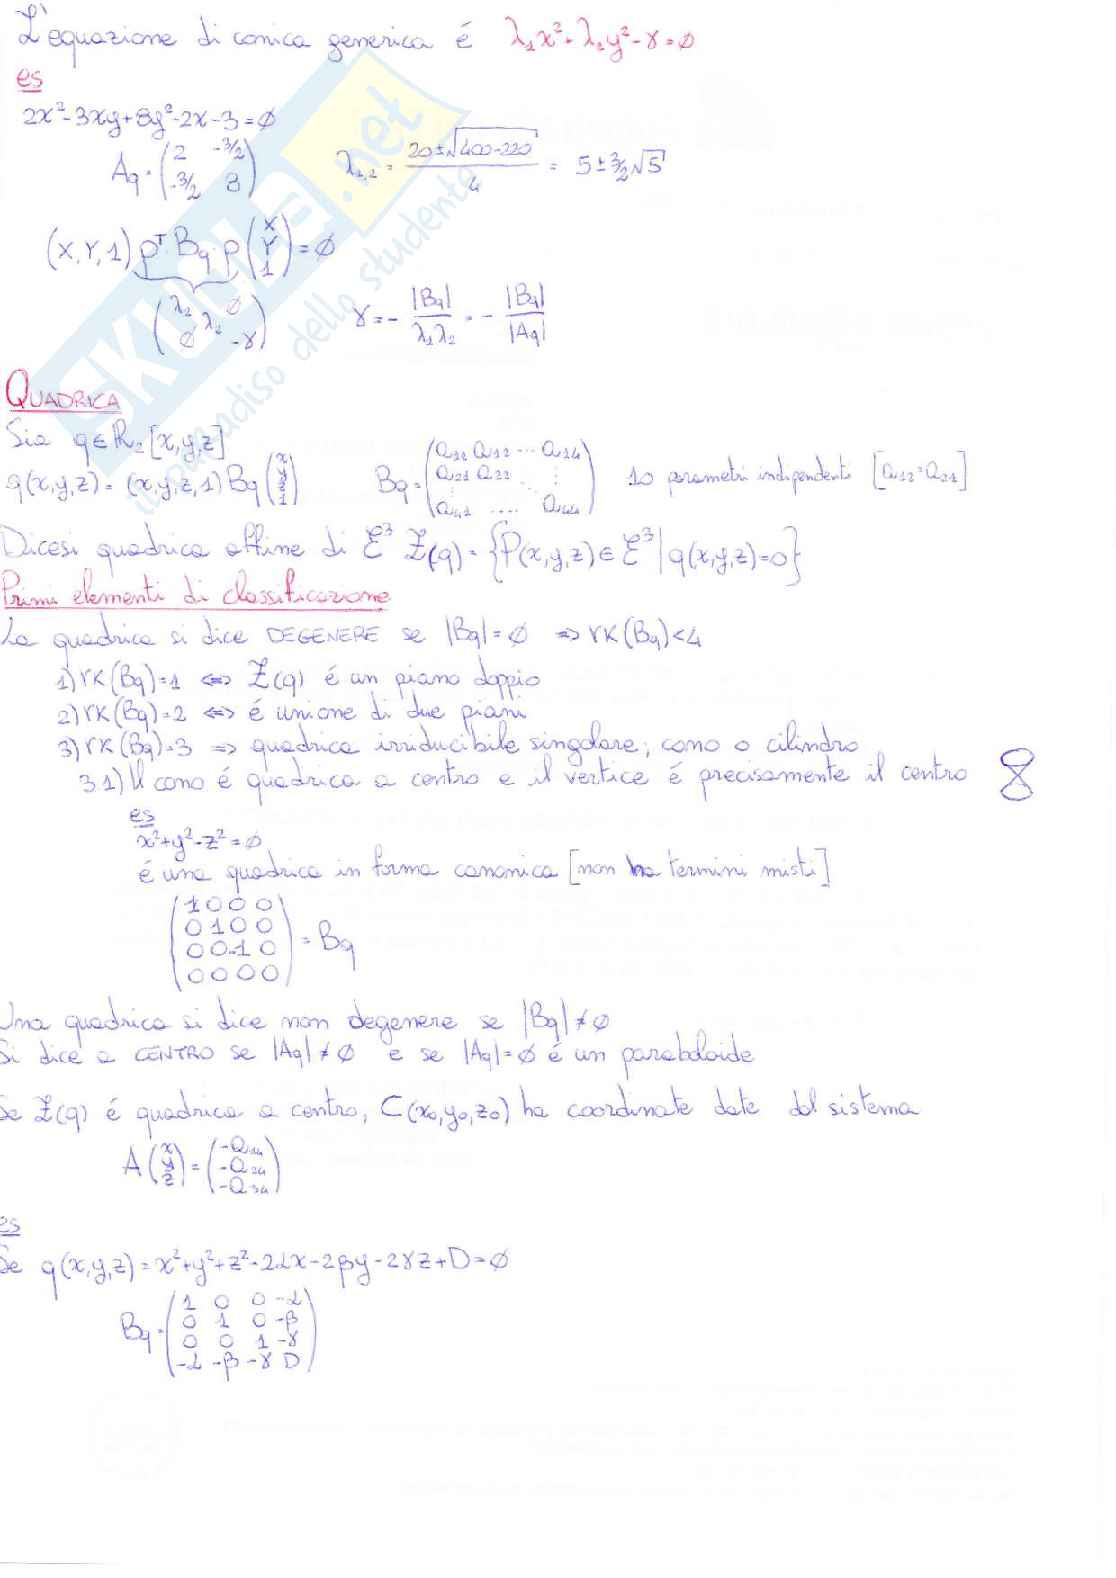 L'equazione di conica generica é λ₁x²+λ₂y²-γ=∅
es
2x²-3xy+8y²-2x-3=∅
Aq = (2 -3/2
-3/2 8) λ₁,₂ = (20±√(400-220))/4 = 5±3/2√5
(X,Y,1) pᵀ Bq p (X Y 1) = ∅
(λ₂ ∅
λ₂
∅ -γ) γ = - |Bq|/λ₁λ₂ = - |Bq|/|Aq|
QUADRICA
Sia q∈ℝ₂[x,y,z]
q(x,y,z) = (x,y,z,1) Bq (x y z 1) Bq = (a₁₁ a₁₂ ... a₁₄
a₂₁ a₂₂ ⋮
a₄₁ .... a₄₄) 10 parametri indipendenti [a₁₂=a₂₁]
Dicesi quadrica affine di ℰ³ Z(q) = {P(x,y,z)∈ℰ³ | q(x,y,z)=0}
Primi elementi di classificazione
La quadrica si dice DEGENERE se |Bq|=∅ ⇒ rk(Bq)<4
1) rk(Bq)=1 ⇔ Z(q) é un piano doppio
2) rk(Bq)=2 ⇔ é unione di due piani
3) rk(Bq)=3 ⇒ quadrica irriducibile singolare; cono o cilindro
3.1) Il cono é quadrica a centro e il vertice é precisamente il centro
es
x²+y²-z²=∅
é una quadrica in forma canonica [non ha termini misti]
(1 0 0 0
0 1 0 0
0 0 -1 0
0 0 0 0) = Bq
Una quadrica si dice non degenere se |Bq|≠∅
Si dice a CENTRO se |Aq|≠∅ e se |Aq|=∅ é un paraboloide
Se Z(q) é quadrica a centro, C(x₀,y₀,z₀) ha coordinate date dal sistema
A (x y z) = (-a₁₄
-a₂₄
-a₃₄)
es
Se q(x,y,z) = x²+y²+z²-2αx-2βy-2γz+D=∅
Bq = (1 0 0 -α
0 1 0 -β
0 0 1 -γ
-α -β -γ D)
SKUOLA.net
il paradiso dello studente